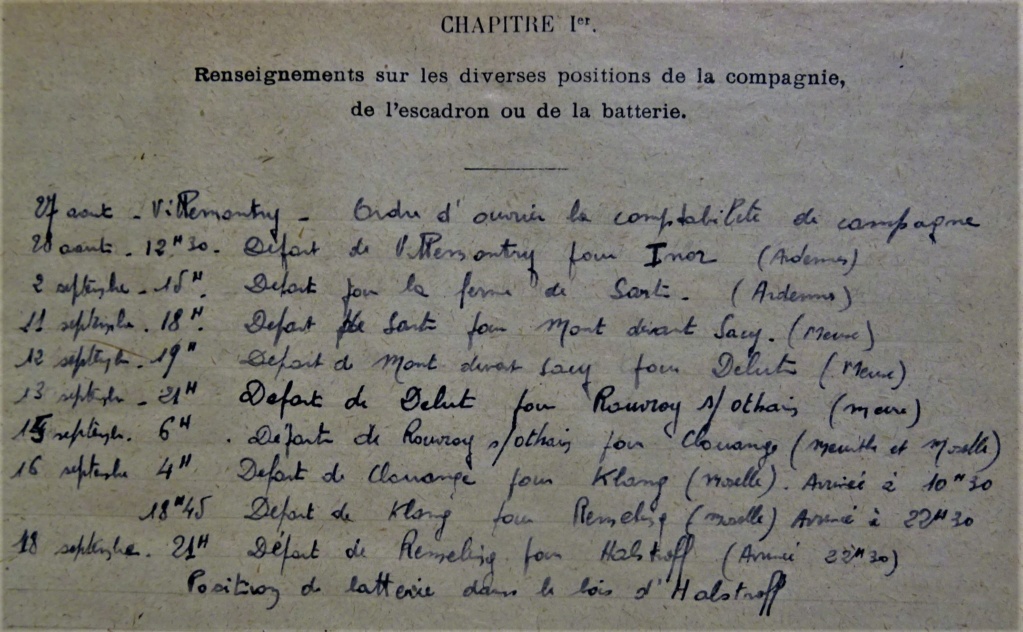 CHAPITRE Ier.
Renseignements sur les diverses positions de la compagnie,
de l'escadron ou de la batterie.
27 aout - Villemontry - Ordre d'ouvrir la comptabilité de campagne
28 aout - 12H30 - Départ de Villemontry pour Inor (Ardennes)
2 septembre - 15H. Départ pour la ferme de Sart. (Ardennes)
11 septembre - 18H. Départ de Sart pour Mont devant Sacy. (Meuse)
12 septembre - 19H Départ de Mont devant Sacy pour Delut (Meuse)
13 septembre - 21H Départ de Delut pour Rouvroy s/othain (Meuse)
15 septembre. 6H. Départ de Rouvroy s/othain pour Clouange (Meurthe et Moselle)
16 septembre 4H Départ de Clouange pour Klang (Moselle). Arrivée à 10H30
18H45 Départ de Klang pour Remeling (Moselle) Arrivée à 22H30
18 septembre. 21H Départ de Remeling pour Halstroff (Arrivée 22H30)
Position de batterie dans le bois d'Halstroff